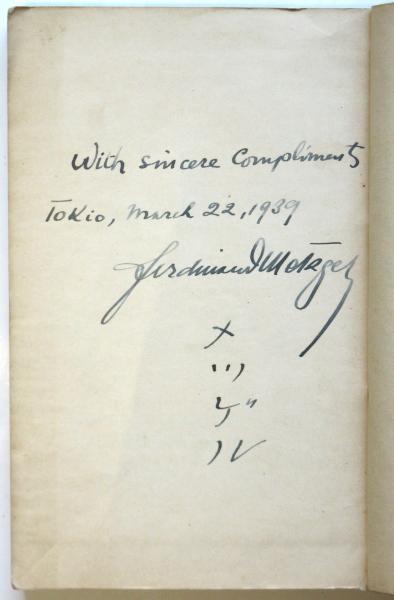 With sincere Compliments
Tokio, March 22, 1939
Ferdinand Metzger
メツゲル